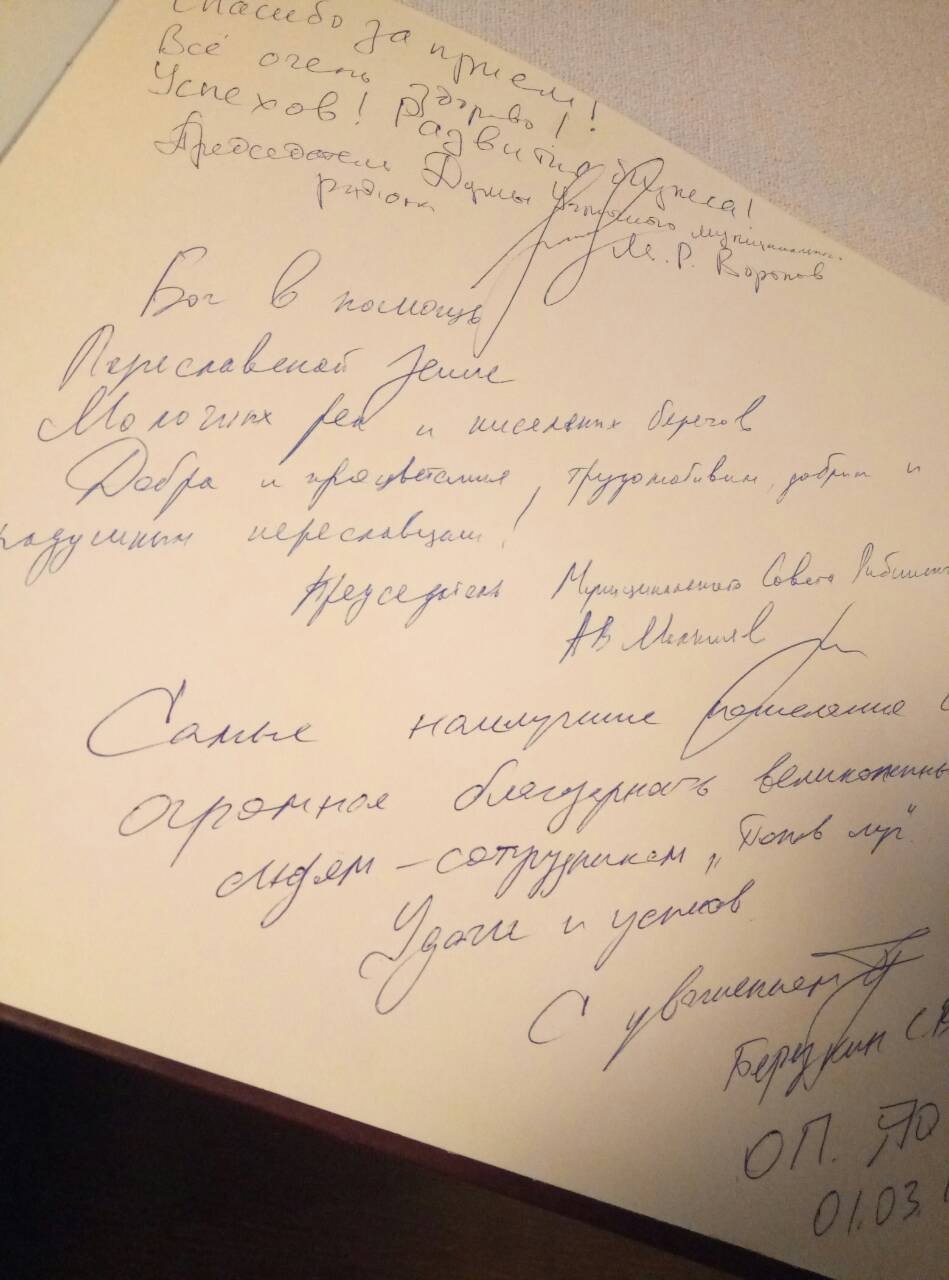 Спасибо за прием!
Всё очень здорово!
Успехов! Развития бизнеса!
Председатель Думы муниципального
района
М. Р. Воронов
Бог в помощь
Переславской земле
Молочных рек и кисельных берегов
Добра и процветания, трудолюбивым, добрым и
радушным переславцам!
Председатель Муниципального Совета
АВ
Самые наилучшие пожелания
огромная благодарность
людям – сотрудникам „Попов луг“.
Удачи и успехов
С уважением
С.
ОП. ЯО
01.03.